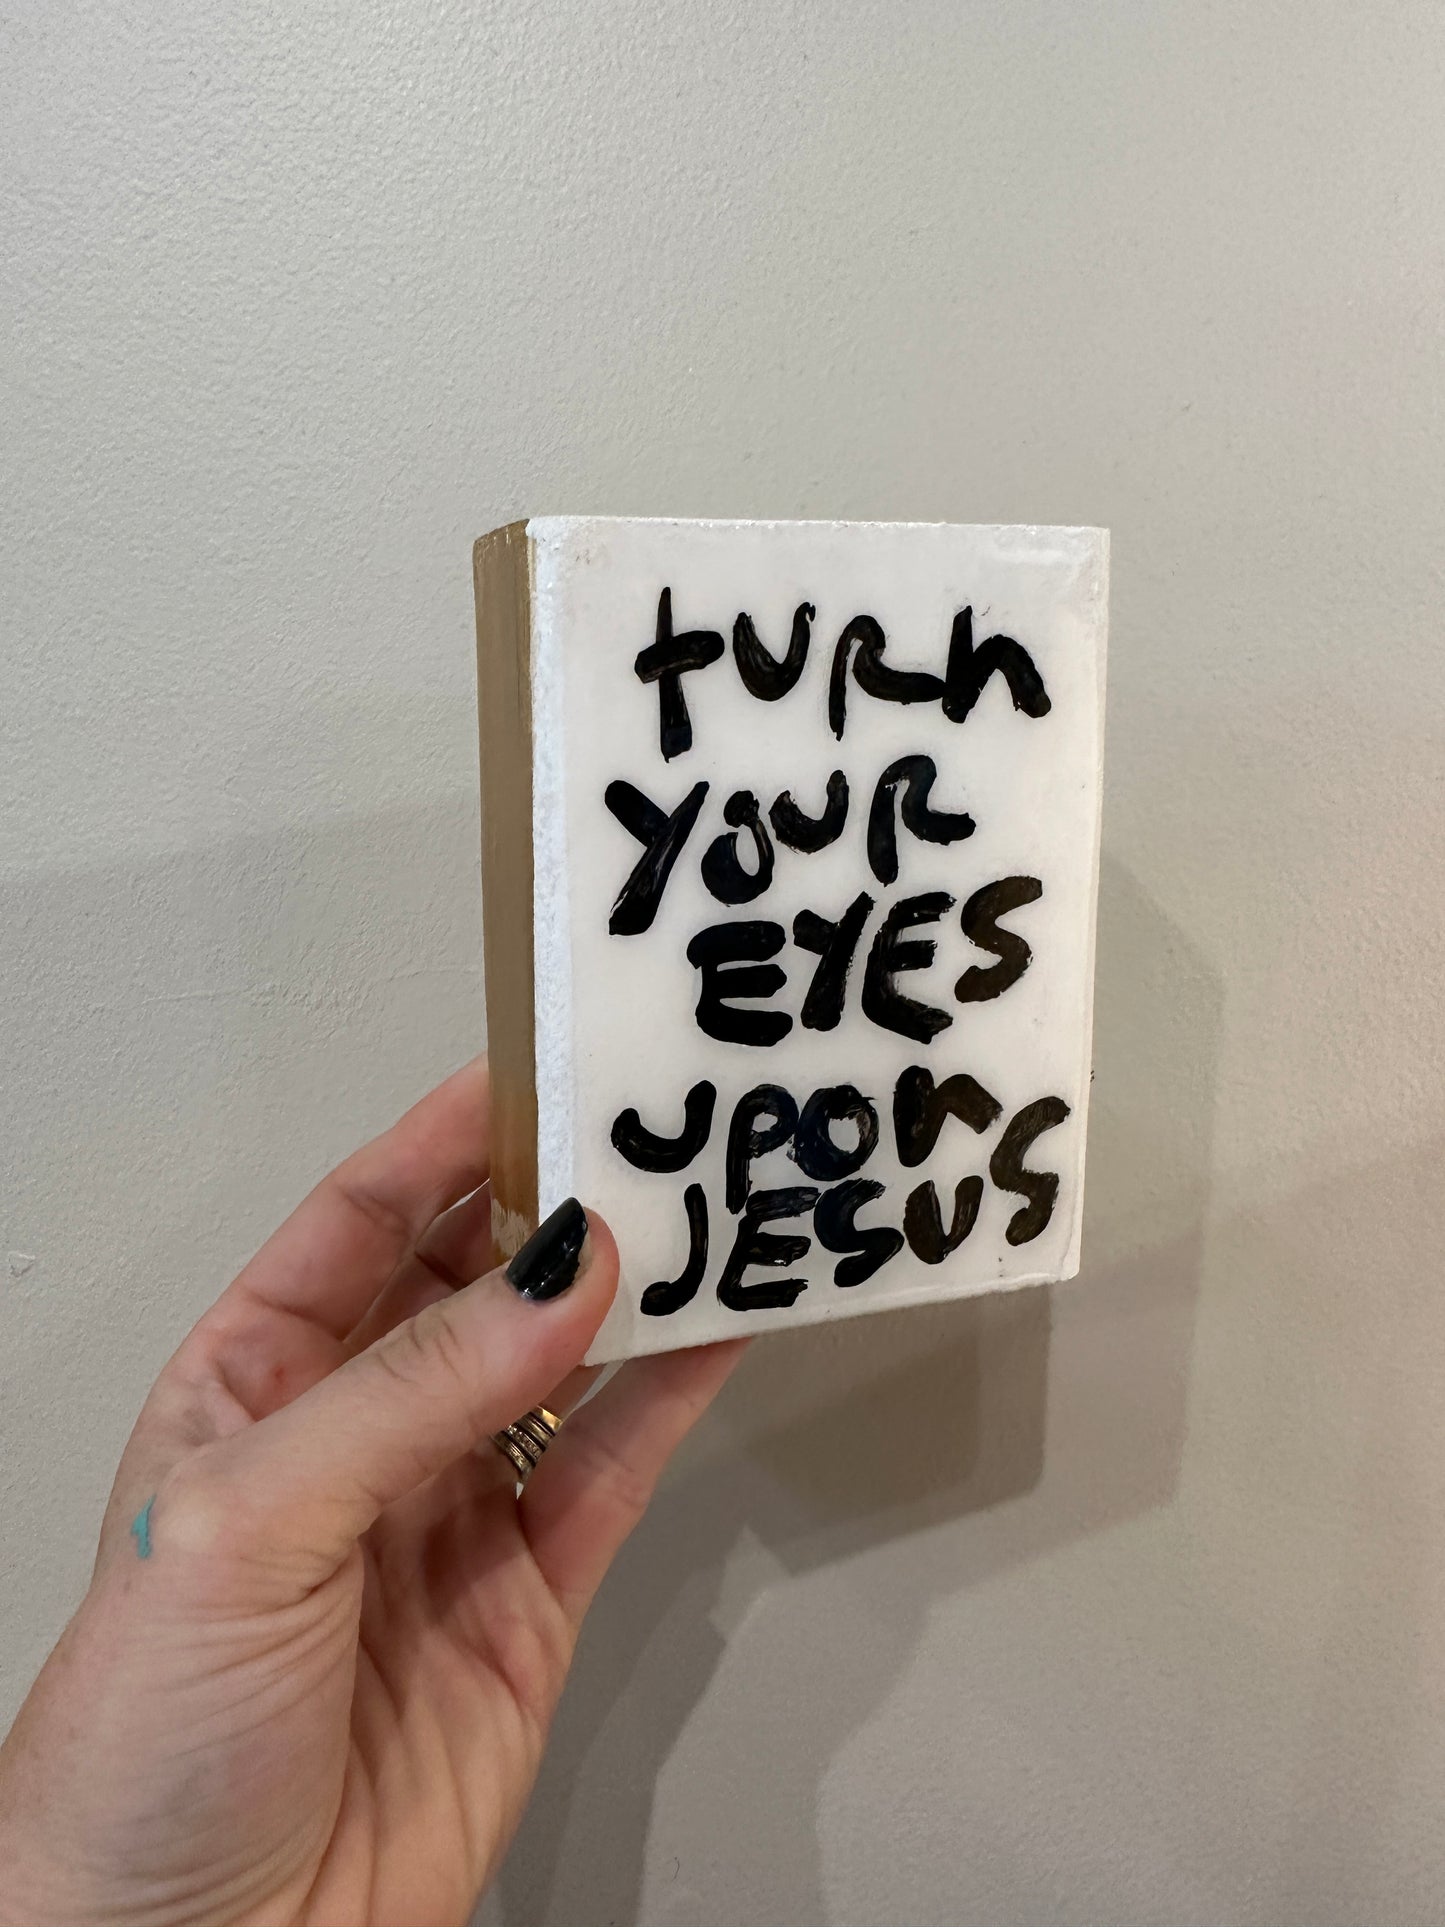 turn
your
EYES
upon
JESUS